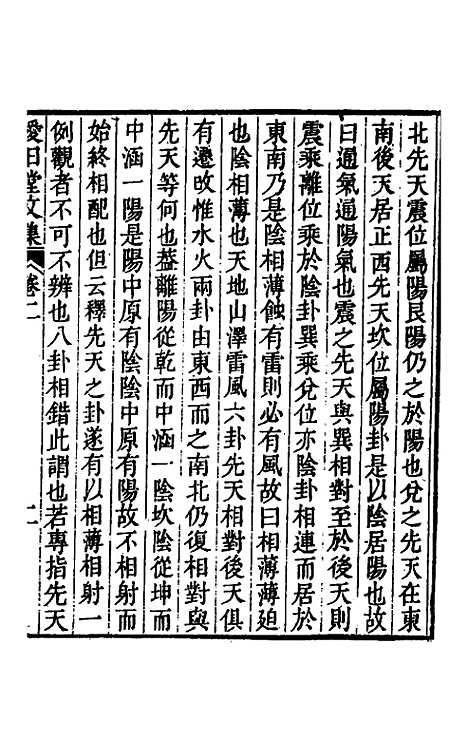 北先天震位屬陽艮陽仍之於陽也兌之先天在東
南後天居正西先天坎位屬陽卦是以陰居陽也故
曰通氣通陽氣也震之先天與巽相對至於後天則
震乘離位乘於陰卦巽乘兌位亦陰卦相連而居於
東南乃是陰相薄蝕有雷則必有風故曰相薄薄迫
也陰相薄也天地山澤雷風六卦先天相對後天俱
有遷改惟水火兩卦由東西而之南北仍復相對與
先天等何也葢離陽從乾而中涵一陰坎陰從坤而
中涵一陽是陽中原有陰陰中原有陽故不相射而
始終相配也但云釋先天之卦遂有以相薄相射一
例觀者不可不辨也八卦相錯此謂也若專指先天
愛日堂文集 卷二 二